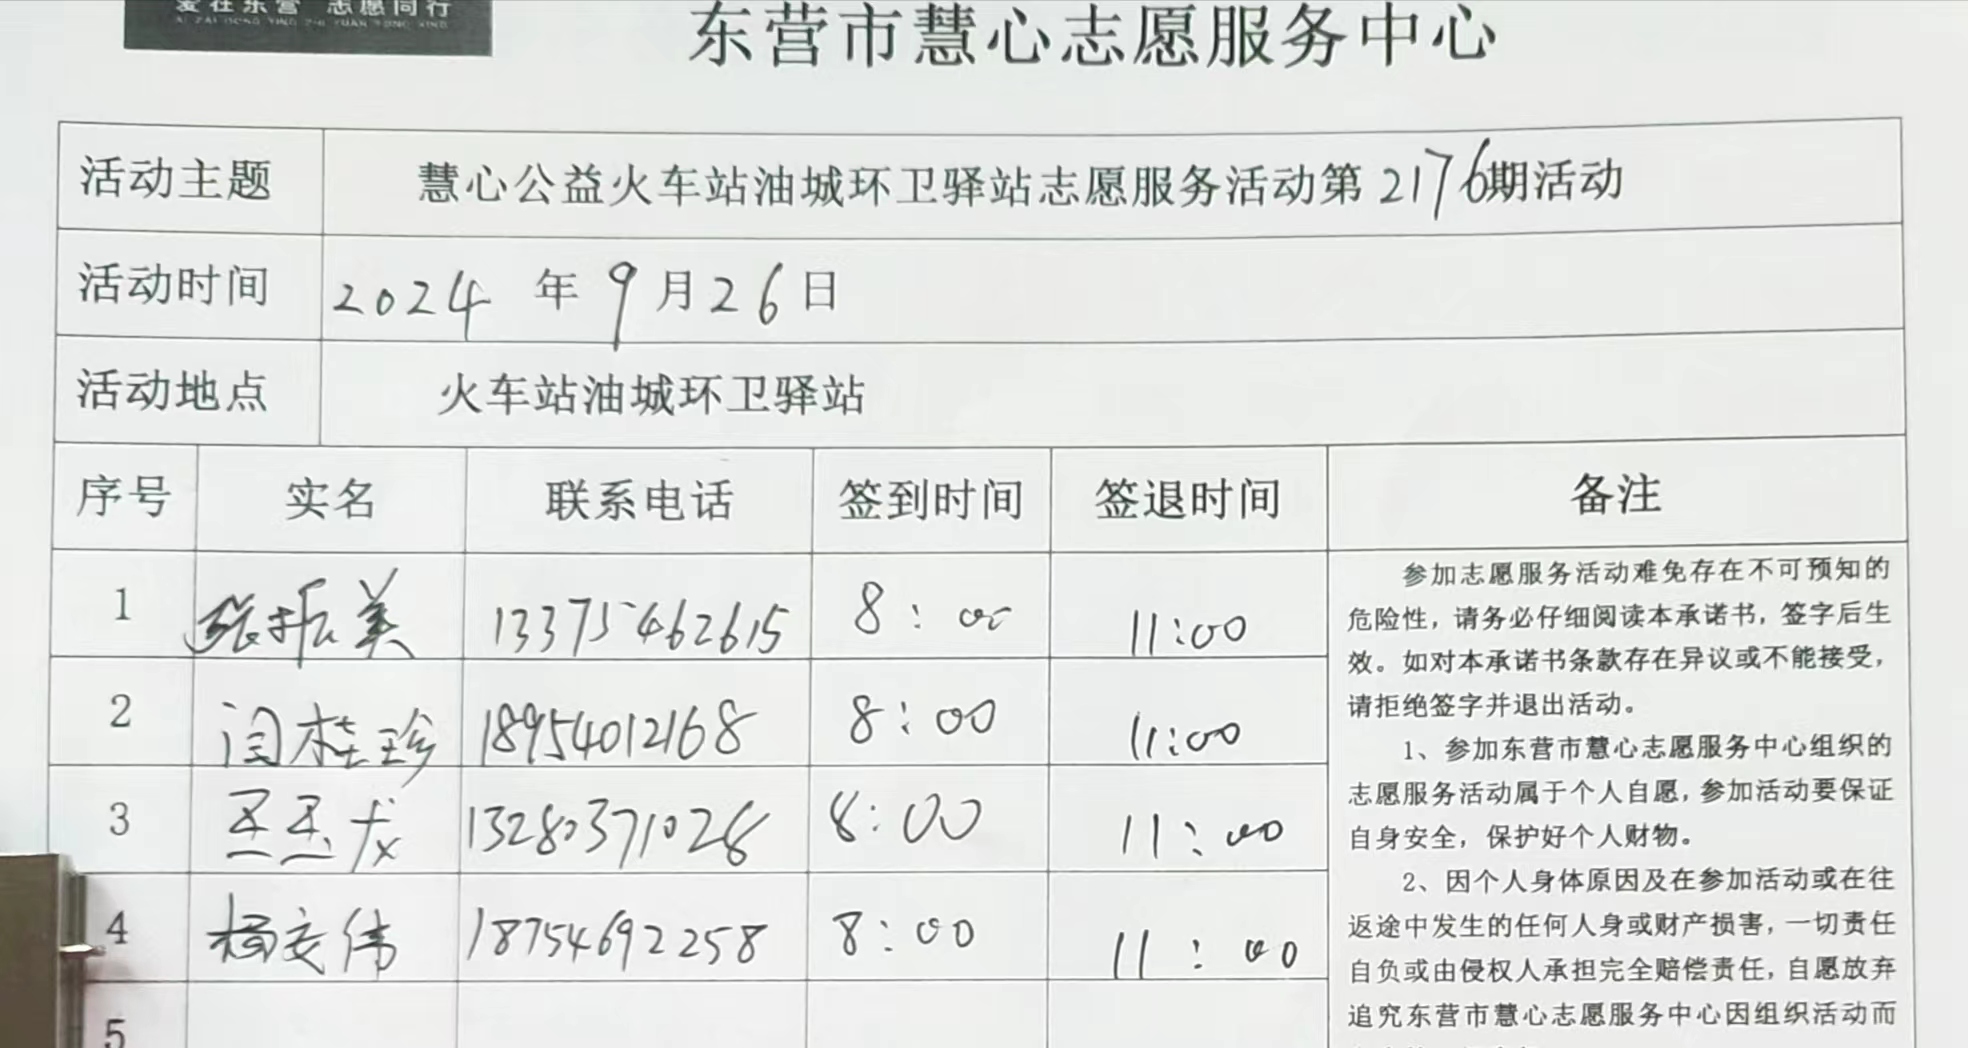 爱在东营 志愿同行
AI ZAI DONG YING ZHI YUAN TONG XING
东营市慧心志愿服务中心
活动主题 慧心公益火车站油城环卫驿站志愿服务活动第2176期活动
活动时间 2024 年 9 月 26 日
活动地点 火车站油城环卫驿站
序号 实名 联系电话 签到时间 签退时间 备注
1 张振美 13375462615 8:00 11:00
2 闫桂珍 18954012168 8:00 11:00
3 13280371028 8:00 11:00
4 杨安伟 18754692258 8:00 11:00
5
参加志愿服务活动难免存在不可预知的
危险性，请务必仔细阅读本承诺书，签字后生
效。如对本承诺书条款存在异议或不能接受，
请拒绝签字并退出活动。
1、参加东营市慧心志愿服务中心组织的
志愿服务活动属于个人自愿，参加活动要保证
自身安全，保护好个人财物。
2、因个人身体原因及在参加活动或在往
返途中发生的任何人身或财产损害，一切责任
自负或由侵权人承担完全赔偿责任，自愿放弃
追究东营市慧心志愿服务中心因组织活动而